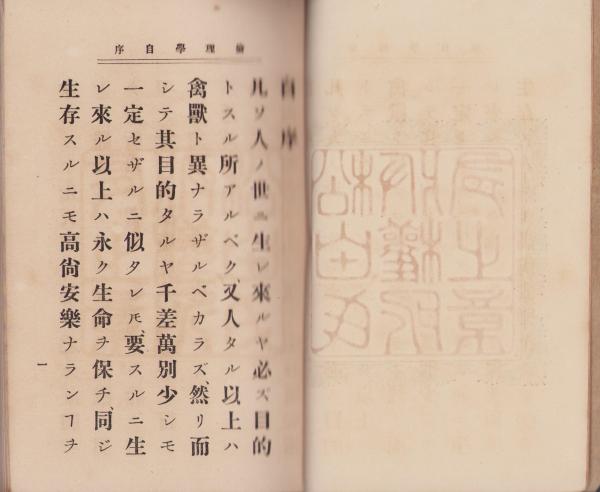 倫理學自序
自序
凡ソ人ノ世ニ生レ來ルヤ必ズ目的
トスル所アルベク、又人タル以上ハ
禽獸ト異ナラザルベカラズ、然リ而
シテ其目的タルヤ千差萬別少シモ
一定セザルニ似タレ𪜈、要スルニ生
レ來ル以上ハ永ク生命ヲ保チ、同ジ
生存スルニモ高尙安樂ナランヿヲ
一